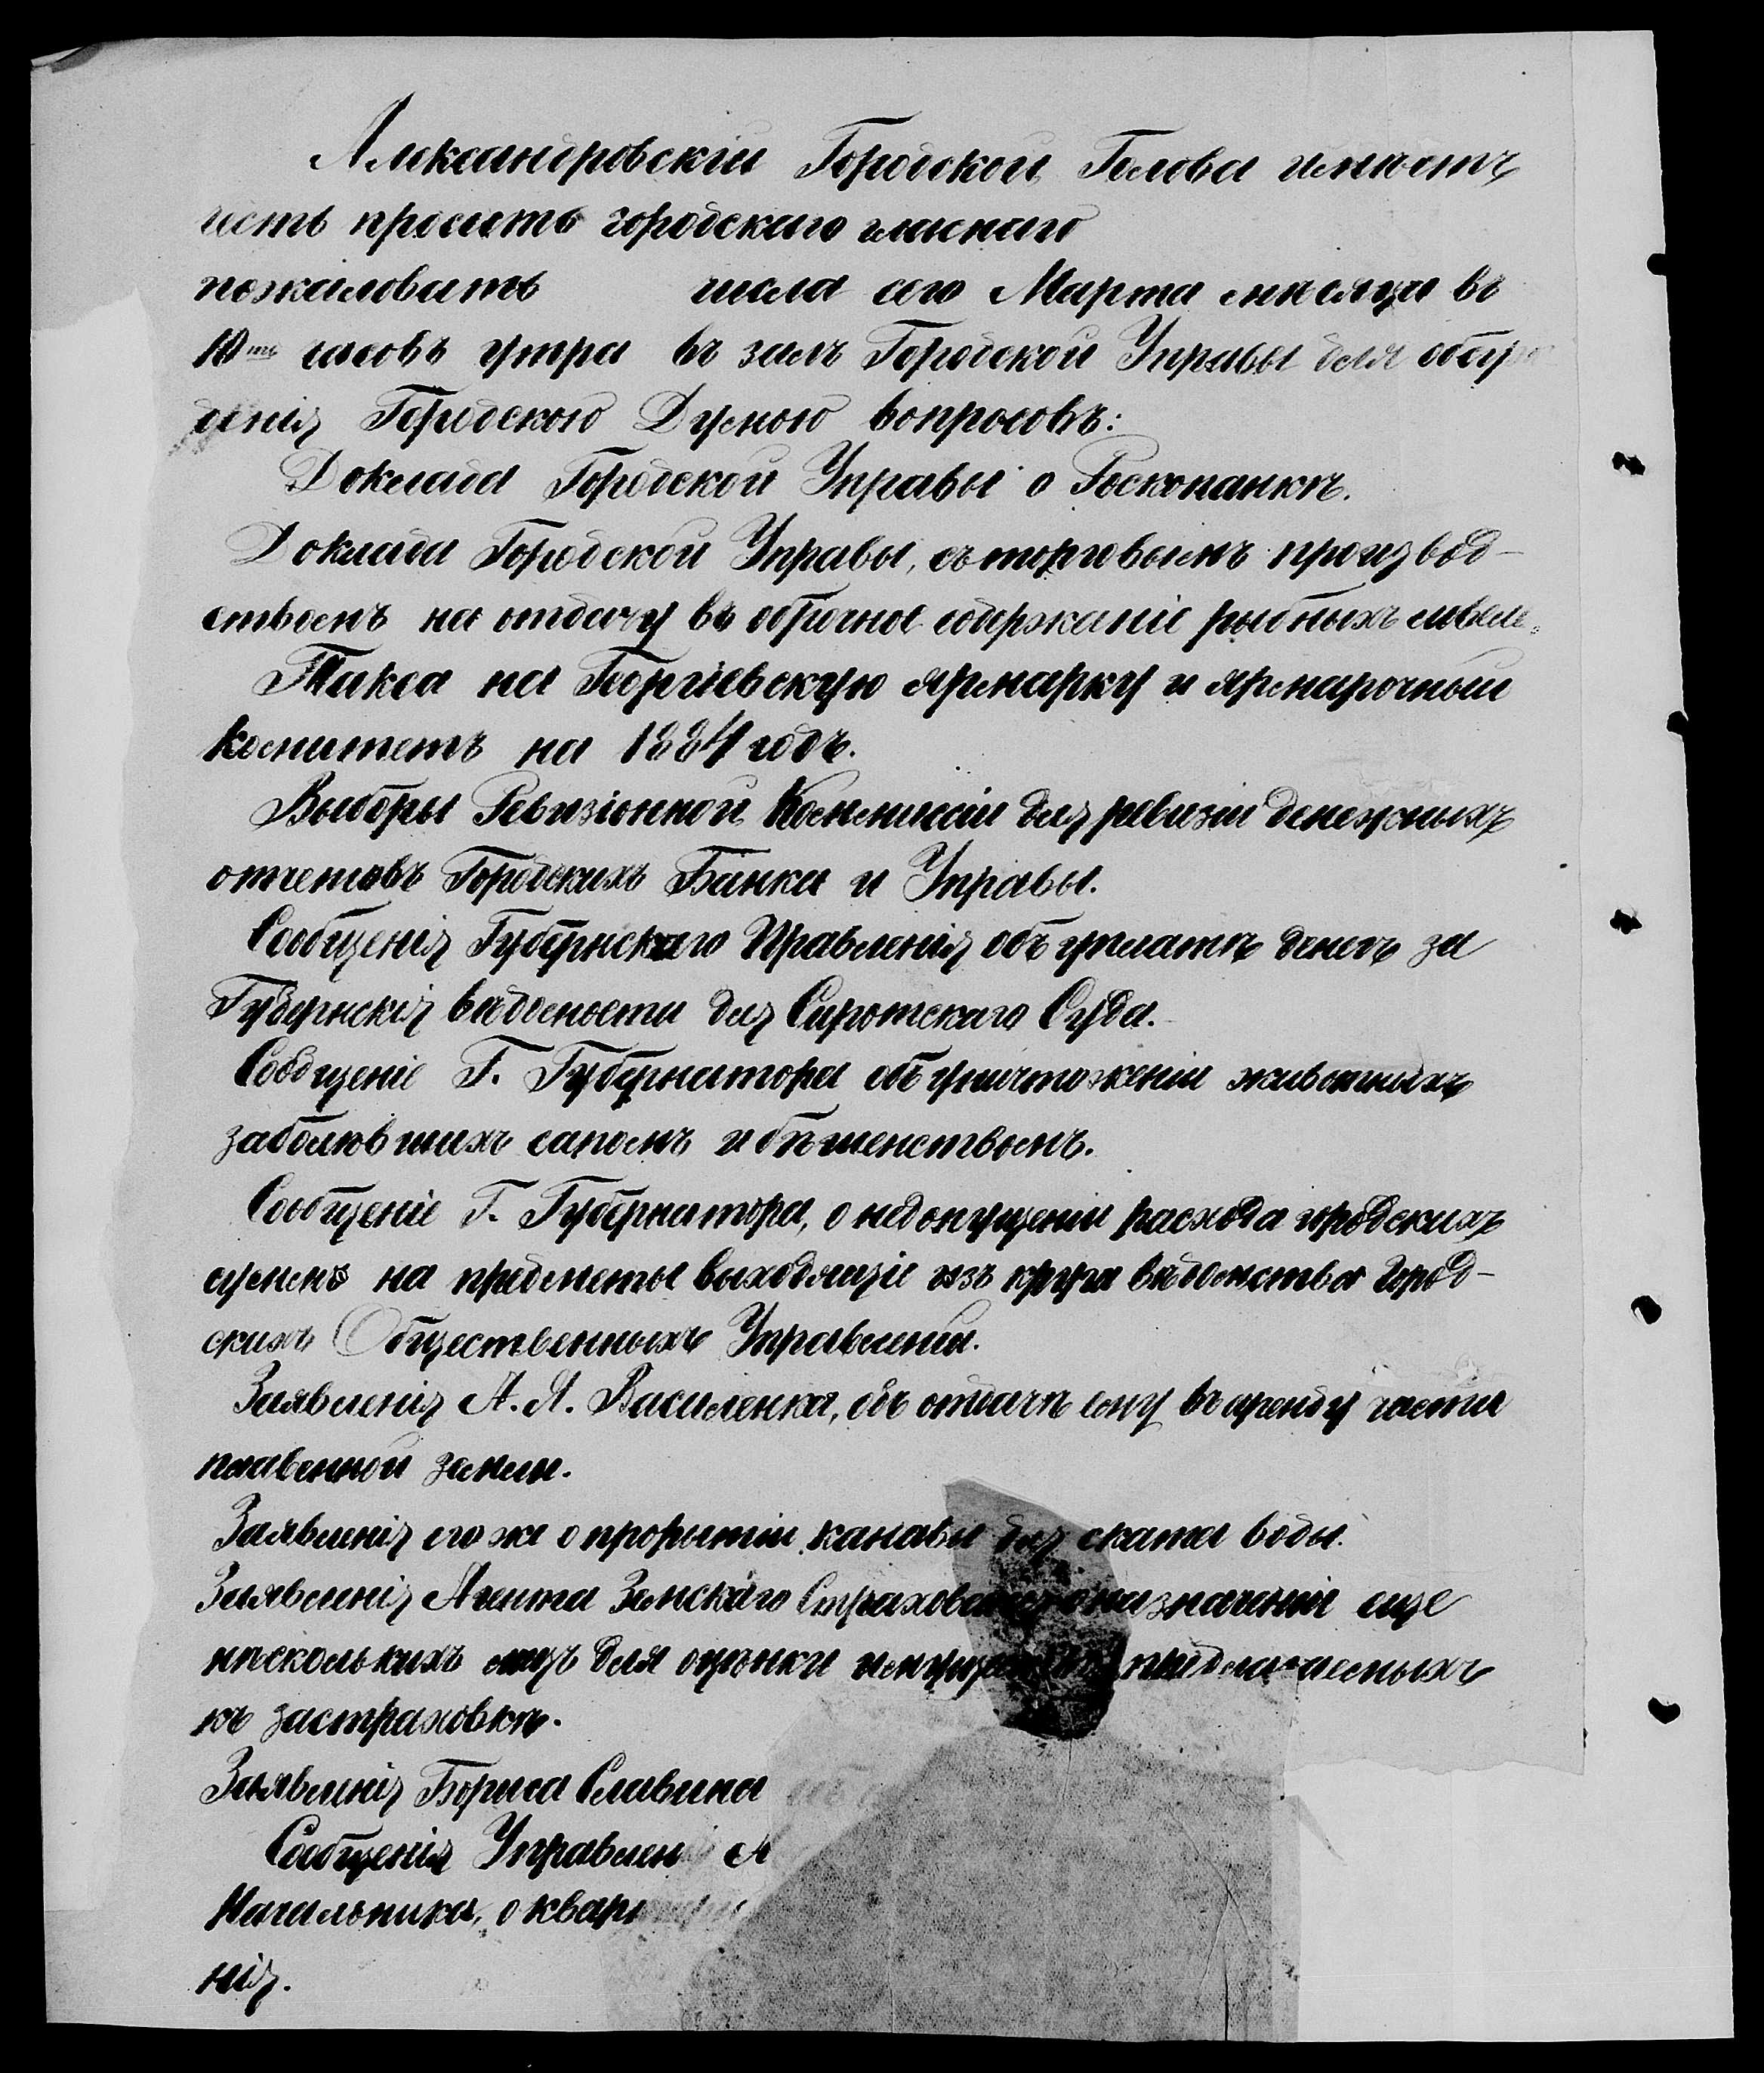 Александровскій Городской Голова имѣетъ
честь просить городскаго гласнаго
пожаловать числа сего Марта мѣсяца въ
10ть часовъ утра въ залъ Городской Управы для обсуж
денія Городскою Думою вопросовъ:
Доклада Городской Управы о
Доклада Городской Управы, съ торговымъ производ-
ствомъ на отдачу въ оброчное содержаніе рыбныхъ
Такса на Георгіевскую ярмарку и ярмарочный
комитетъ на 1884 годъ.
Выборы Ревизіонной Коммиссіи для ревизіи денежныхъ
отчетовъ Городскихъ Банка и Управы.
Сообщенія Губернскаго Правленія объ уплатѣ денегъ за
Губернскія вѣдомости для Сиротскаго Суда.
Сообщеніе Г. Губернатора объ уничтоженіи животныхъ
заболѣвшихъ сапомъ и бѣшенствомъ.
Сообщеніе Г. Губернатора, о недопущеніи расхода городскихъ
суммъ на предметы выходящіе изъ круга вѣдомства Город-
скихъ Общественныхъ Управленій.
Заявленія А. Я. Василенка, объ отдачѣ ему въ аренду части
плавенной земли.
Заявленія его же о прорытіи канавы для ската воды.
Заявленія Агента Земскаго Страхованія о назначеніи еще
нѣсколькихъ лицъ для оцѣнки имуществъ предлагаемыхъ
къ застраховкѣ.
Заявленія Бориса Славина
Сообщенія Управлен
Начальника, о кварт
нія.